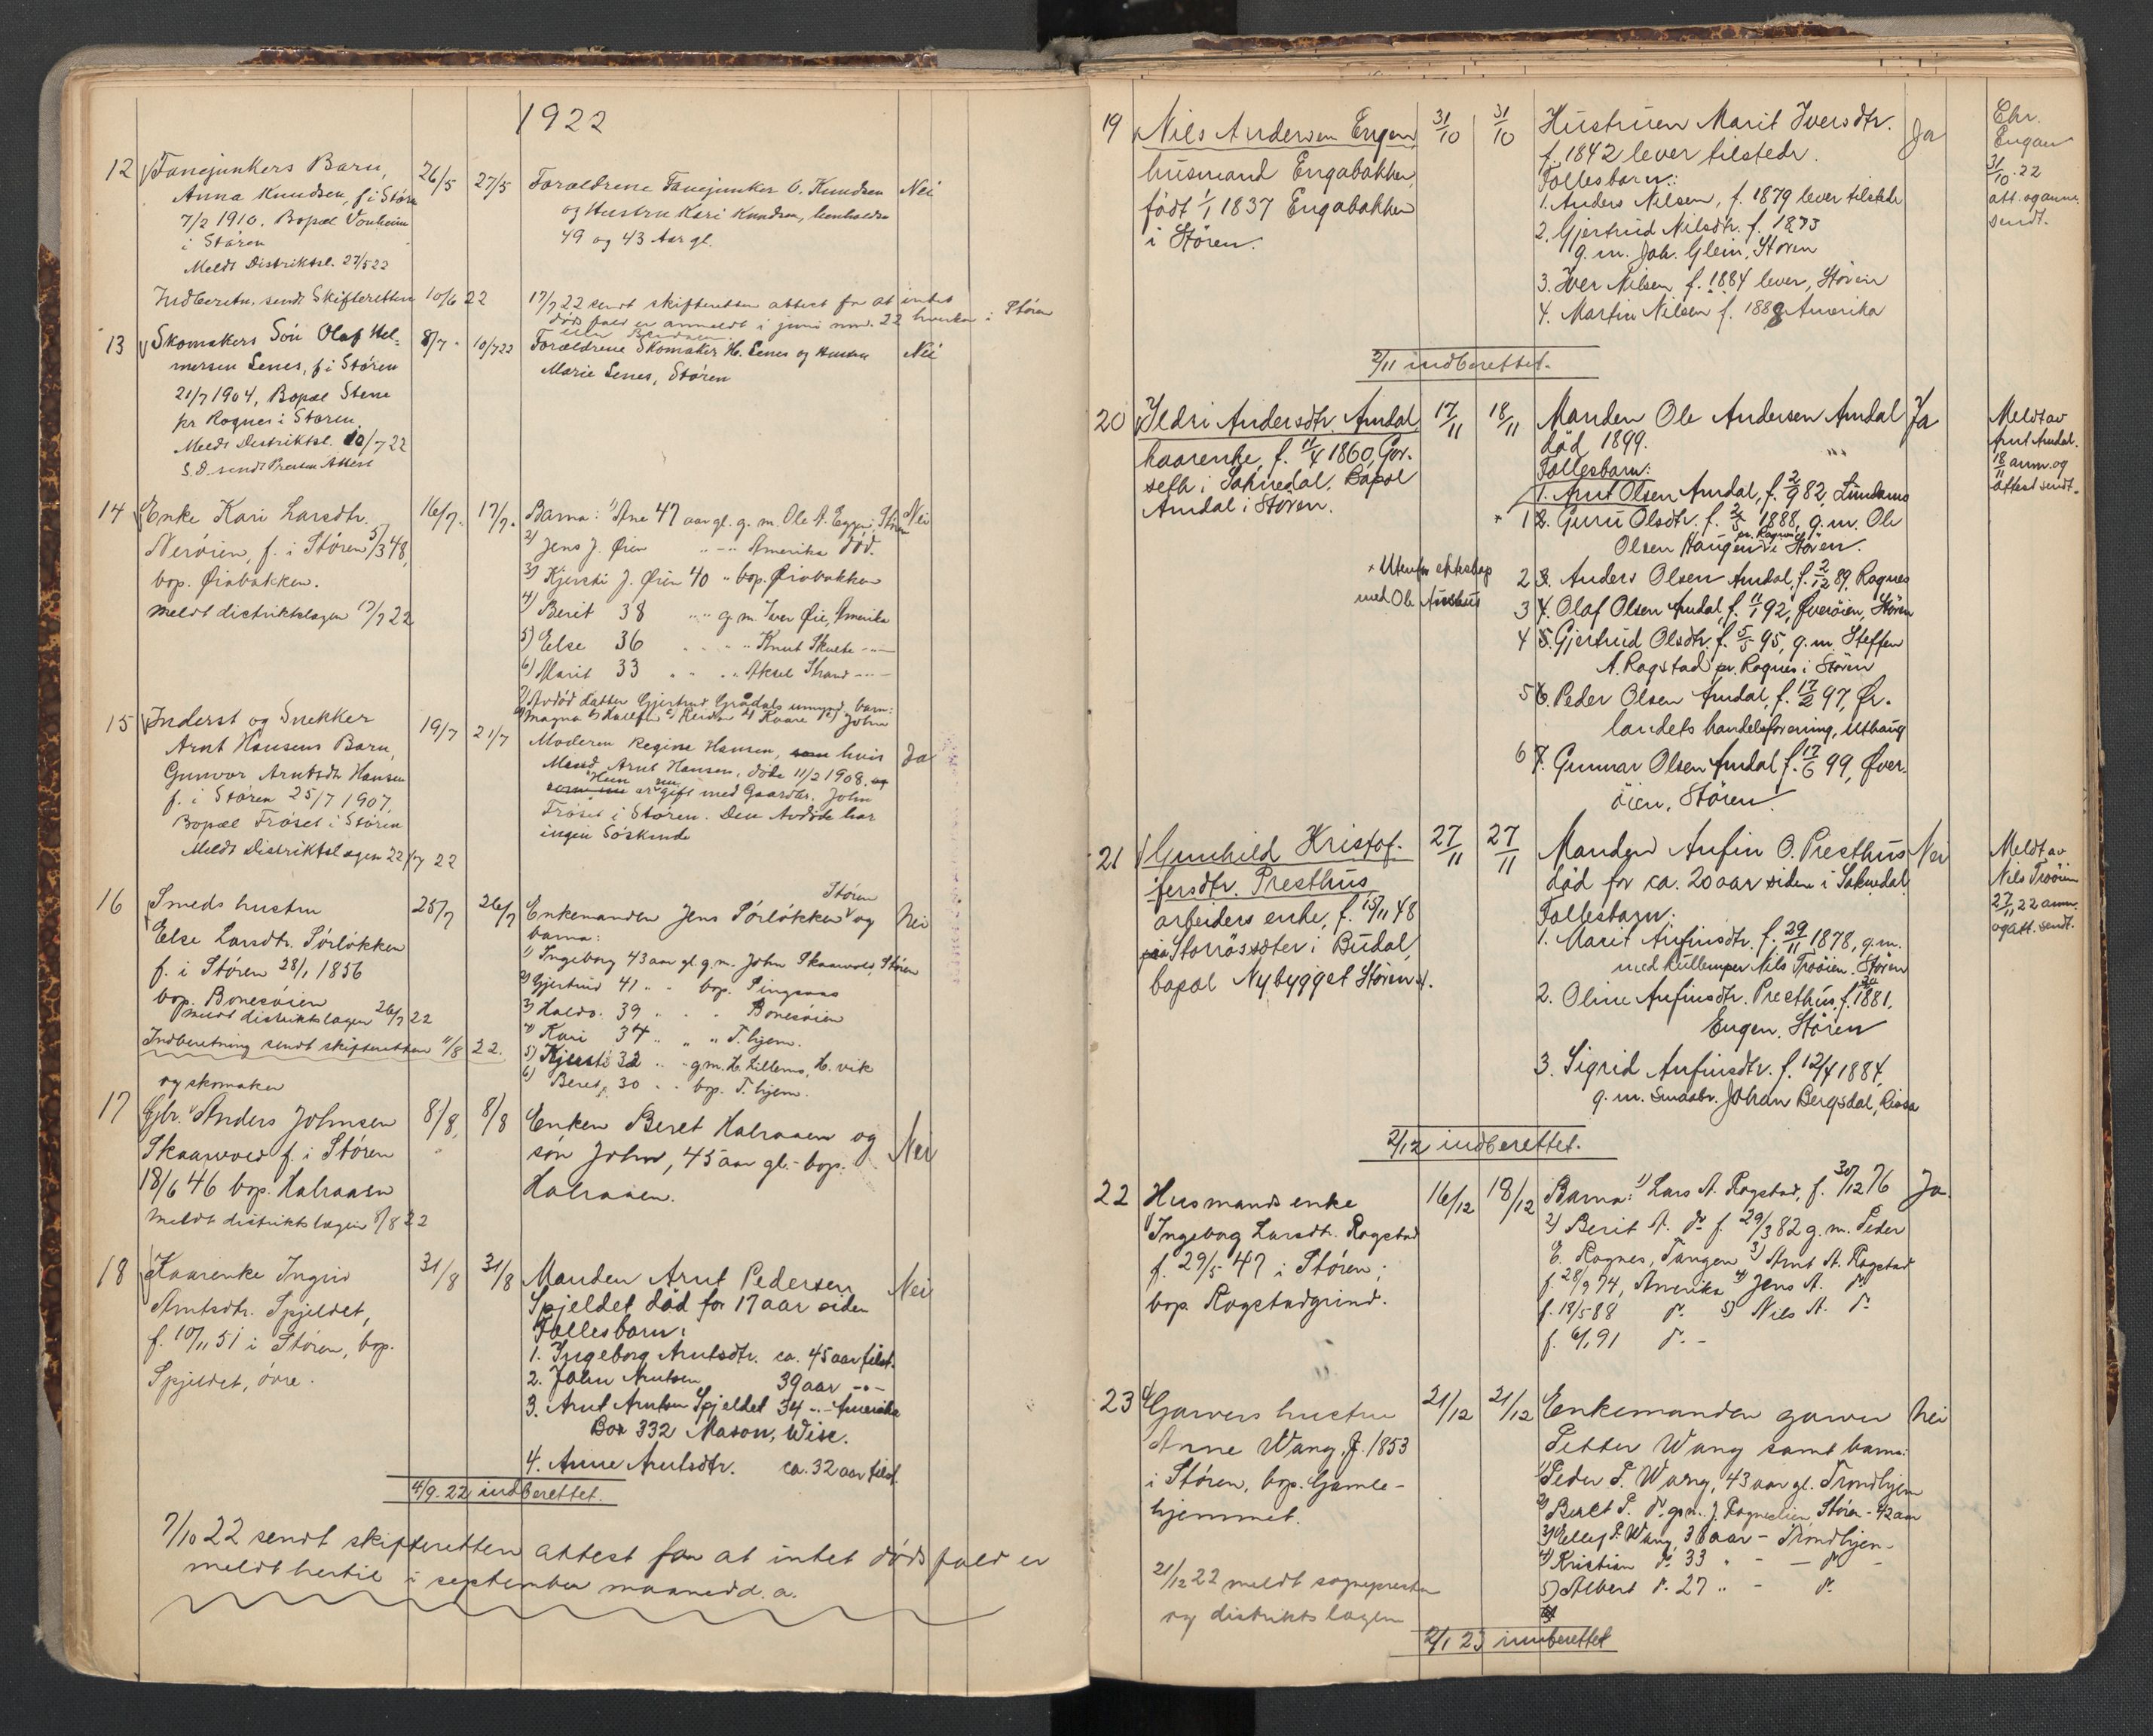 1922
12 Fanejunkers Barn, 26/5 27/5 Forældrene Fanejunker O. Knudsen Nei
Anna Knudsen, f. i Støren og Hustru Kari Knudsen, henholdsv
7/2 1910. Bopæl Vonheim 49 og 43 Aar gl.
i Støren
Meldt Distriktsl. 27/5 22
Indberetn. sendt Skifteretten 10/6 22 17/7 22 sendt skifteretten attest for at intet
dødsfald er anmeldt i juni mnd. 22 hverken i Støren
eller Budalen
13 Skomakers Søn Olaf Hel- 8/7 10/7 22 Forældrene Skomaker H. Lenes og Hustru Nei
mersen Lenes, f. i Støren Marie Lenes, Støren
21/7 1904, Bopæl Stene
pr Rognes i Støren
Meldt Distriktsl. 10/7 22
S.D. sendt Presten Attest
14 Enke Kari Larsdtr. 16/7. 17/7. Barna: 1) Ane 47 aar gl. g. m. Ole A. Eggen, Støren Nei
Nerøien, f. i Støren 5/3 48, 2) Jens J. Øien Amerika død.
bop. Øiabakken. 3) Kjersti J. Øien 40 " bop. Øiabakken
meldt distriktslægen 17/7 22 4) Berit 38 " g. m. Iver Øie, Amerika
5) Else 36 " Knut Skulte -"-
6) Marit 33 " Aksel Strand -"-
7) Avdød datter Gjertrud Grødals umynd. barn:
Magna Kaare John
15 Inderst og Snekker 19/7 21/7 Moderen Regine Hansen, som hvis Ja
Arnt Hansens Barn, Mand, Arnt Hansen, døde 11/2 1908. og
Gunvor Arntsdtr Hansen Hun er nu gift med Gaardbr. John
f. i Støren 25/7 1907. Frøset i Støren. Den Avdøde har
Bopæl Frøset i Støren ingen Søskende
Meldt Distriktslægen 22/7 22
16 Smeds hustru 25/7 26/7 Enkemanden Jens Pørløkken Støren og Nei
Else Larsdtr. Pørløkken barna:
f. i Støren 28/1 1856 1) Ingeborg 43 aar gl. g. m. John Skaarvold, Støren
bop. Bonesøien 2) Gjertrud 41 " " bop. Singsaas
meldt distriktslægen 26/7 22 3) Haldo. 39 " " Bonesøien
Indberetning sendt skifteretten 11/8 22. 4) Kari 34 " " T.hjem.
5) Kjersti 32 " g. m. H. Lillemo, H. vik
6) Beret, 30 " bop. T.hjem.
17 Gbr. og skomaker Anders Johnsen 8/8. 8/8 Enken Beret Halraaen og Nei
Skaarvold f. i Støren søn John, 45 aar gl. - bop.
18/6 46 bop. Halraaen Halraaen.
meldt distriktslægen 8/8 22
18 Kaarenke Ingrid 31/8 31/8 Manden Arnt Pedersen Nei
Arntsdtr. Spjeldet, Spjeldet død for 17 aar siden
f. 10/11 51 i Støren, bop. Fællesbarn:
Spjeldet, øvre. 1. Ingeborg Arntsdtr. ca. 45 aar tilst.
2. John Arntsen 39 aar -"-
3. Arnt Arntsen Spjeldet 34 -"- Amerika
Box 332 Mason, Wisc.
4. Anne Arntsdtr. ca. 32 aar tilst.
4/9. 22 indberettet.
7/10 22 sendt skifteretten attest for at intet dødsfald er
meldt hertil i september maaned d. a.
19 Nils Andersen Engen, 31/10 31/10 Hustruen Marit Iversdtr. Ja Chr.
husmand Engabakken, f. 1842 lever tilstede. Engan
født 1/1 1837 Engabakken Fællesbarn: 31/10. 22
i Støren. 1. Anders Nilsen, f. 1879 lever tilstede att. og anm.
2. Gjertrud Nilsdtr. f. 1873 sendt.
g. m. Joh. Glein, Støren
3. Iver Nilsen f. 1884 lever, Støren
4. Martin Nilsen f. 1888 Amerika
2/11 indberettet.
20 Ildri Andersdtr. Amdal, 17/11 18/11 Manden Ole Andersen Amdal Ja Meldt av
kaarenke, f. 11/4 1860, Gor- død 1899. Arnt Amdal.
seth i Soknedal. Bopæl Fællesbarn: 18/11 anm. og
Amdal i Støren. 1. Arnt Olsen Amdal, f. 2/9 82, Lundamo attest sendt.
x 1 2. Guru Olsdtr. f. 2/5 1888, g. m. Ole
Olsen Haugen pr. Rognes i Støren.
x Utenfor ekteskap 2 3. Anders Olsen Amdal, f. 2/12 89, Rognes
med Ole 3 4. Olaf Olsen Amdal, f. 11/1 92, Øverøien, Støren
4 5. Gjertrud Olsdtr. f. 5/5 95, g. m. Steffen
A. Rogstad pr. Rognes i Støren
5 6. Peder Olsen Amdal, f. 17/2 97, Ør-
landets handelsforening, Uthaug
6 7. Gunnar Olsen Amdal f. 17/6 99, Øver-
øien, Støren.
21 Gunhild Kristof- 27/11 27/11 Manden Anfin O. Presthus Nei Meldt av
fersdtr. Presthus død for ca. 20 aar siden i Soknedal Nils Trøøien
arbeiders enke, f. 15/11 48 Fællesbarn: 27/11 22 anm.
paa Storrøssæter i Budal, 1. Marit Anfinsdtr. f. 29/11 1878, g. m. og att. sendt.
bopæl Nybygget Støren. med Rullemper Nils Trøøien. Støren
2. Oline Anfinsdtr. Presthus, f. 1881,
Engen. Støren
3. Sigrid Anfinsdtr. f. 12/4 1884,
g. m. Smaabr. Johan Bergsdal, Rissa
2/12 indberettet.
22 Husmands enke 16/12 18/12 Barna: 1) Lars A. Rogstad, f. 30/12 76 Ja.
Ingebog Larsdtr. Rogstad 2) Berit A. do f. 29/3 82 g. m. Peder
f. 29/5 47 i Støren; E. Rognes, Tangen 3) Arnt A. Rogstad
bop. Rogstadgrind. f. 28/9 74, Amerika 4) Jens A. do
f. 18/5 88 do. 5) Nils A. do
f. 6/1 91 do. -
23 Garvers hustru 21/12 21/12 Enkemanden garver Nei
Anne Wang, f. 1853 Petter Wang samt barna:
i Støren, bop. Gamle- 1) Peder P. Wang, 43 aar gl. Trondhjem
hjemmet. 2) Beret P. do. g. m. J. Rogneslien, Støren - 42 aar
3) Ellef P. Wang, 36 aar - Trondhjem -
4) Kristian do. 33 " - do -
21/12 22 meldt sogneprest 5) Albert do. 27 " - do.
og distriktslægen
2/1 23 innberettet